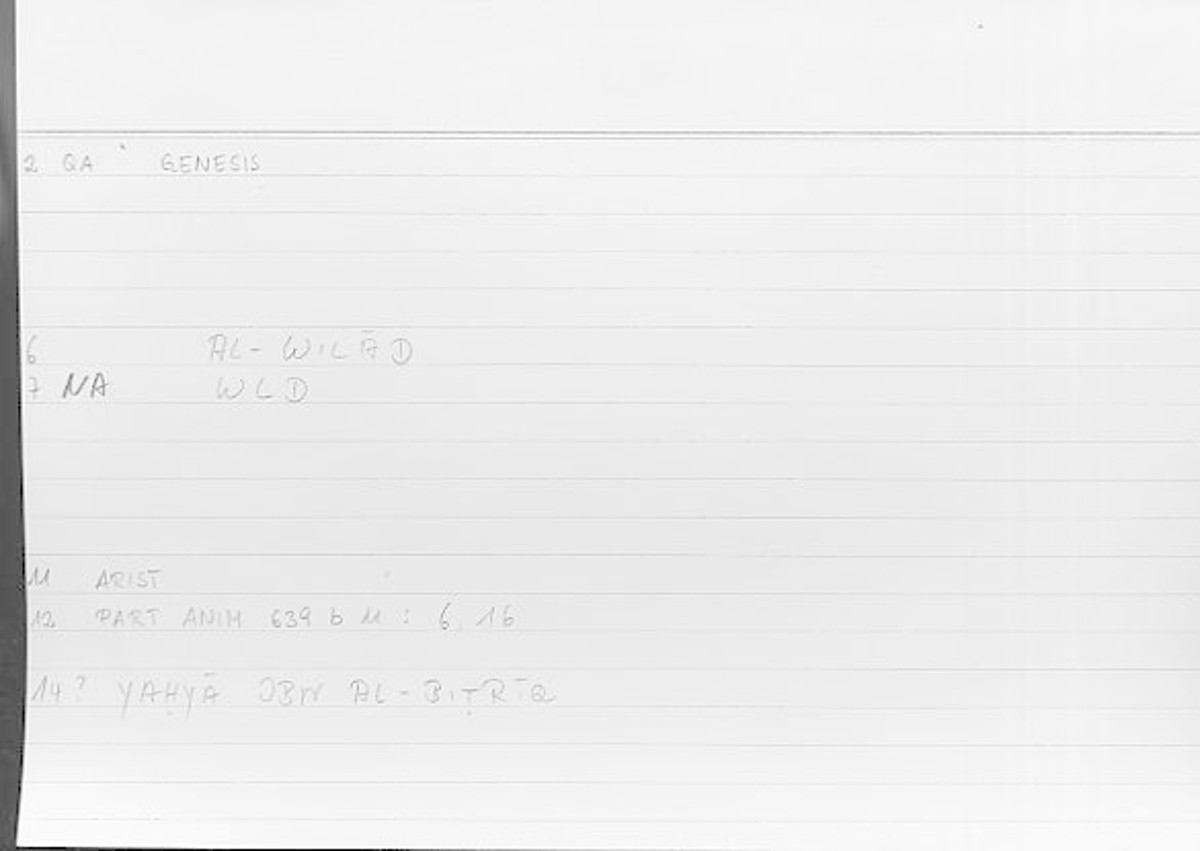 2 QA GENESIS
6 AL-WILĀD
7 NA WLD
11 ARIST
12 PART ANIM 639 b 11 : 6, 16
14? YAḤYĀ IBN AL-BIṬRĪQ